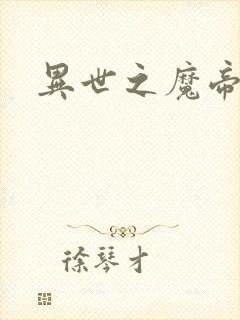 異世之魔帝
徐琴才